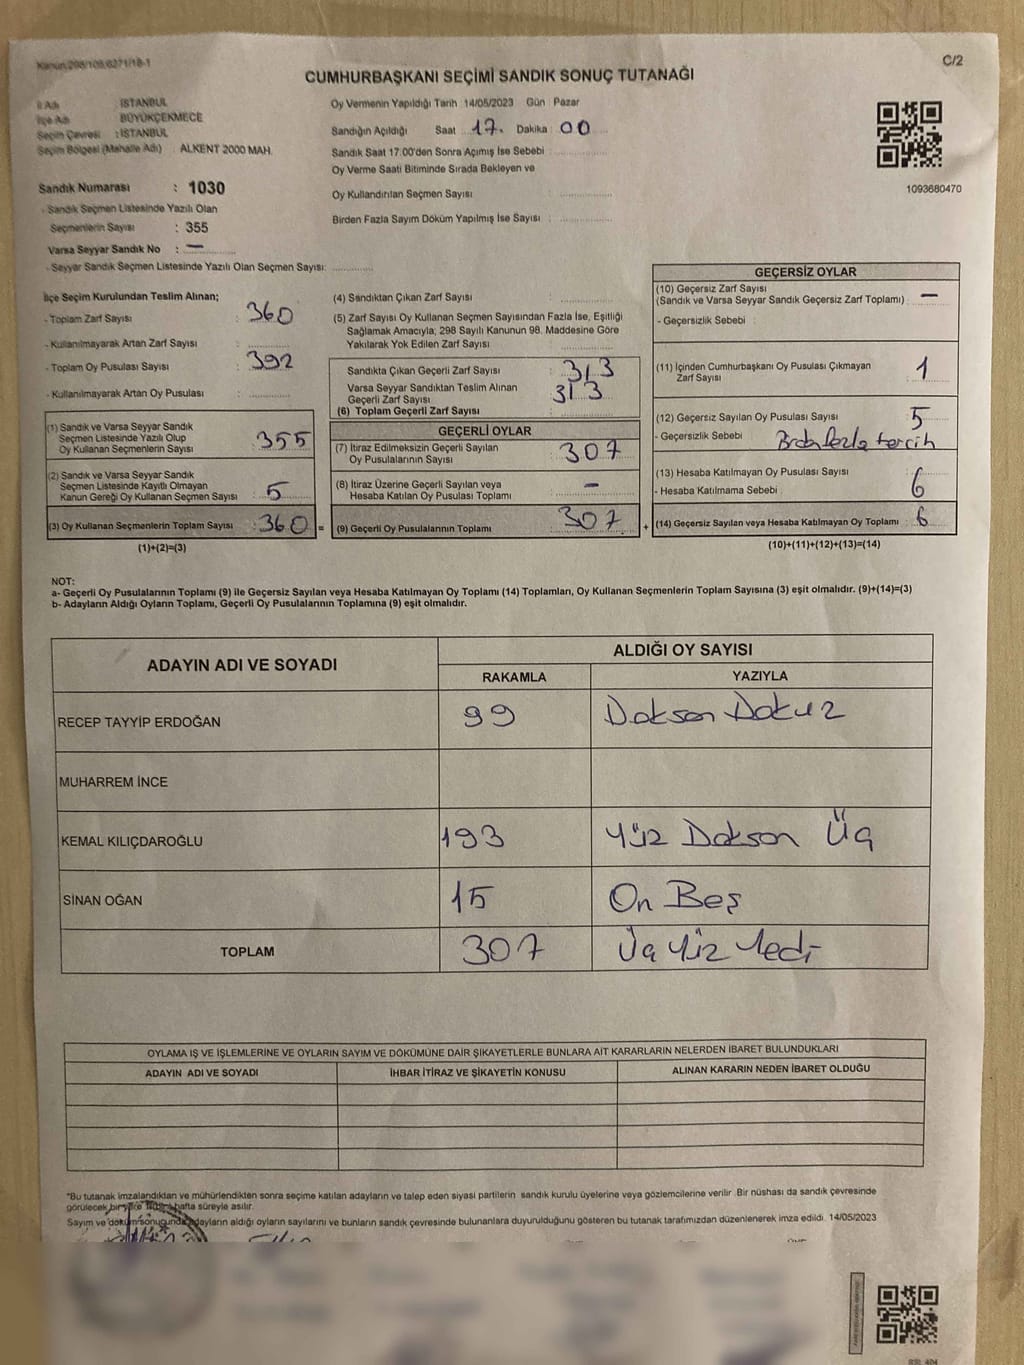 Kanun:298/105,6271/18-1
C/2
CUMHURBAŞKANI SEÇİMİ SANDIK SONUÇ TUTANAĞI
İl Adı : İSTANBUL
İlçe Adı : BÜYÜKÇEKMECE
Seçim Çevresi : İSTANBUL
Seçim Bölgesi (Mahalle Adı) : ALKENT 2000 MAH.
Sandık Numarası : 1030
- Sandık Seçmen Listesinde Yazılı Olan
Seçmenlerin Sayısı : 355
Varsa Seyyar Sandık No : —
- Seyyar Sandık Seçmen Listesinde Yazılı Olan Seçmen Sayısı:
Oy Vermenin Yapıldığı Tarih 14/05/2023 Gün Pazar
Sandığın Açıldığı Saat 17. Dakika 00
Sandık Saat 17:00'den Sonra Açımış İse Sebebi :
Oy Verme Saati Bitiminde Sırada Bekleyen ve
Oy Kullandırılan Seçmen Sayısı :
Birden Fazla Sayım Döküm Yapılmış İse Sayısı :
1093680470
İlçe Seçim Kurulundan Teslim Alınan;
- Toplam Zarf Sayısı : 360
- Kullanılmayarak Artan Zarf Sayısı :
- Toplam Oy Pusulası Sayısı : 392
- Kullanılmayarak Artan Oy Pusulası :
(1) Sandık ve Varsa Seyyar Sandık
Seçmen Listesinde Yazılı Olup
Oy Kullanan Seçmenlerin Sayısı : 355
(2) Sandık ve Varsa Seyyar Sandık
Seçmen Listesinde Kayıtlı Olmayan
Kanun Gereği Oy Kullanan Seçmen Sayısı : 5
(3) Oy Kullanan Seçmenlerin Toplam Sayısı : 360
(1)+(2)=(3)
(4) Sandıktan Çıkan Zarf Sayısı :
(5) Zarf Sayısı Oy Kullanan Seçmen Sayısından Fazla İse, Eşitliği
Sağlamak Amacıyla; 298 Sayılı Kanunun 98. Maddesine Göre
Yakılarak Yok Edilen Zarf Sayısı :
Sandıkta Çıkan Geçerli Zarf Sayısı : 313
Varsa Seyyar Sandıktan Teslim Alınan
Geçerli Zarf Sayısı : 313
(6) Toplam Geçerli Zarf Sayısı :
GEÇERLİ OYLAR
(7) İtiraz Edilmeksizin Geçerli Sayılan
Oy Pusulalarının Sayısı : 307
(8) İtiraz Üzerine Geçerli Sayılan veya
Hesaba Katılan Oy Pusulası Toplamı : —
= (9) Geçerli Oy Pusulalarının Toplamı : 307
GEÇERSİZ OYLAR
(10) Geçersiz Zarf Sayısı
(Sandık ve Varsa Seyyar Sandık Geçersiz Zarf Toplamı) : —
- Geçersizlik Sebebi :
(11) İçinden Cumhurbaşkanı Oy Pusulası Çıkmayan
Zarf Sayısı : 1
(12) Geçersiz Sayılan Oy Pusulası Sayısı : 5
- Geçersizlik Sebebi : fazla tercih
(13) Hesaba Katılmayan Oy Pusulası Sayısı
- Hesaba Katılmama Sebebi : 6
+ (14) Geçersiz Sayılan veya Hesaba Katılmayan Oy Toplamı : 6
(10)+(11)+(12)+(13)=(14)
NOT:
a- Geçerli Oy Pusulalarının Toplamı (9) ile Geçersiz Sayılan veya Hesaba Katılmayan Oy Toplamı (14) Toplamları, Oy Kullanan Seçmenlerin Toplam Sayısına (3) eşit olmalıdır. (9)+(14)=(3)
b- Adayların Aldığı Oyların Toplamı, Geçerli Oy Pusulalarının Toplamına (9) eşit olmalıdır.
ADAYIN ADI VE SOYADI
ALDIĞI OY SAYISI
RAKAMLA YAZIYLA
RECEP TAYYİP ERDOĞAN 99 Doksan Dokuz
MUHARREM İNCE
KEMAL KILIÇDAROĞLU 193 Yüz Doksan Üç
SİNAN OĞAN 15 On Beş
TOPLAM 307 Üç Yüz Yedi
OYLAMA İŞ VE İŞLEMLERİNE VE OYLARIN SAYIM VE DÖKÜMÜNE DAİR ŞİKAYETLERLE BUNLARA AİT KARARLARIN NELERDEN İBARET BULUNDUKLARI
ADAYIN ADI VE SOYADI İHBAR İTİRAZ VE ŞİKAYETİN KONUSU ALINAN KARARIN NEDEN İBARET OLDUĞU
*Bu tutanak imzalandıktan ve mühürlendikten sonra seçime katılan adayların ve talep eden siyasi partilerin sandık kurulu üyelerine veya gözlemcilerine verilir. Bir nüshası da sandık çevresinde
görülecek bir yere hafta süreyle asılır.
Sayım ve döküm sonucunda adayların aldığı oyların sayılarını ve bunların sandık çevresinde bulunanlara duyurulduğunu gösteren bu tutanak tarafımızdan düzenlenerek imza edildi. 14/05/2023